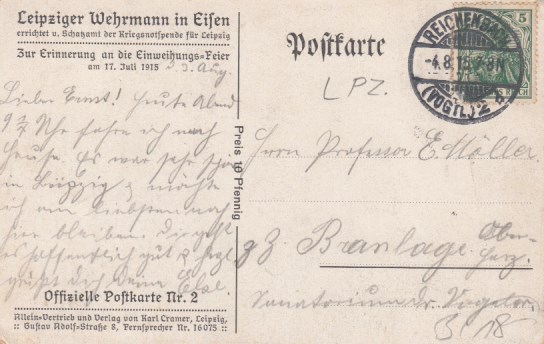 Leipziger Wehrmann in Eisen
errichtet u. Schatzamt der Kriegsnotspende für Leipzig
Zur Erinnerung an die Einweihungs-Feier
am 17. Juli 1915
3. Aug.
Lieber Ernst! Heute Abend
Uhr fahre ich nach
Hause. Es war sehr schön
in Leipzig & möchte
ich am liebsten noch
hier bleiben. Dir geht
es hoffentlich gut &
grüßt Dich Deine
Offizielle Postkarte Nr. 2
Allein-Vertrieb und Verlag von Karl Cramer, Leipzig,
:: Gustav Adolf-Straße 8, Fernsprecher Nr. 16075 ::
Preis 10 Pfennig
Postkarte
LPZ.
REICHENBACH
-4.8.15. 7-8N
(VOGTL.) 2
5
Herrn Professor E. Möller.
z. Z. Braunlage Ober-
harz.
Sanatorium Dr. Vogeler.